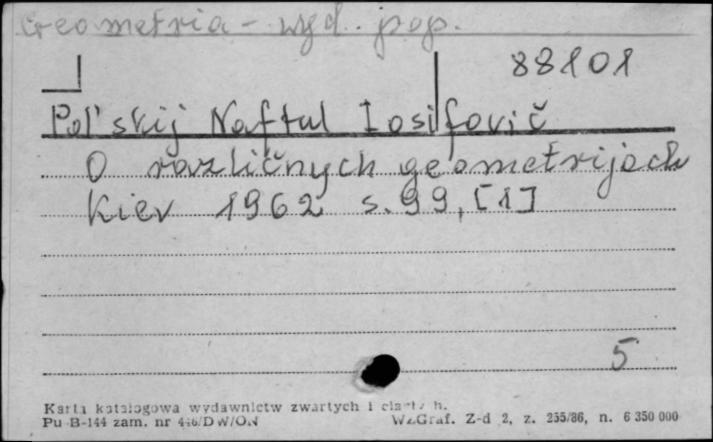 Geometria - wyd. pop.
88101
Pol'skij Naftul Iosifovič
O različnych geometrijach
Kiev 1962 s. 99, [1]
5
Karta katalogowa wydawnictw zwartych i
Pu B-144 zam. nr W.Z.Graf. Z-d 2, z. 255/86, n. 6 350 000